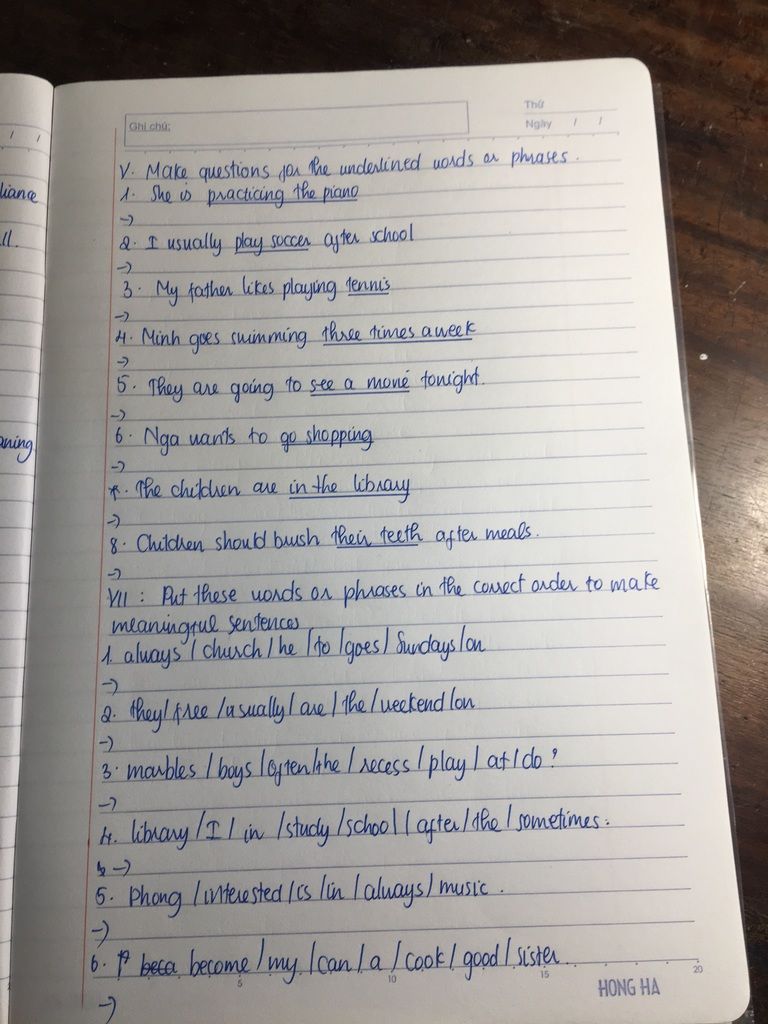 Thứ
Ghi chú:
Ngày / /
V. Make questions for the underlined words or phrases.
1. She is practicing the piano
->
2. I usually play soccer after school
->
3. My father likes playing tennis
->
4. Minh goes swimming three times a week
->
5. They are going to see a movie tonight.
->
6. Nga wants to go shopping
->
7. The children are in the library
->
8. Children should brush their teeth after meals.
->
VII : Put these words or phrases in the correct order to make
meaningful sentences
1. always / church / he / to / goes / Sundays / on
->
2. they / free / usually / are / the / weekend / on
->
3. marbles / boys / often / the / recess / play / at / do ?
->
4. library / I / in / study / school / after / the / sometimes.
->
5. Phong / interested / is / in / always / music.
->
6. become / my / can / a / cook / good / sister
5 10 15 20
HONG HA
->
liance
ll.
ning
/ /